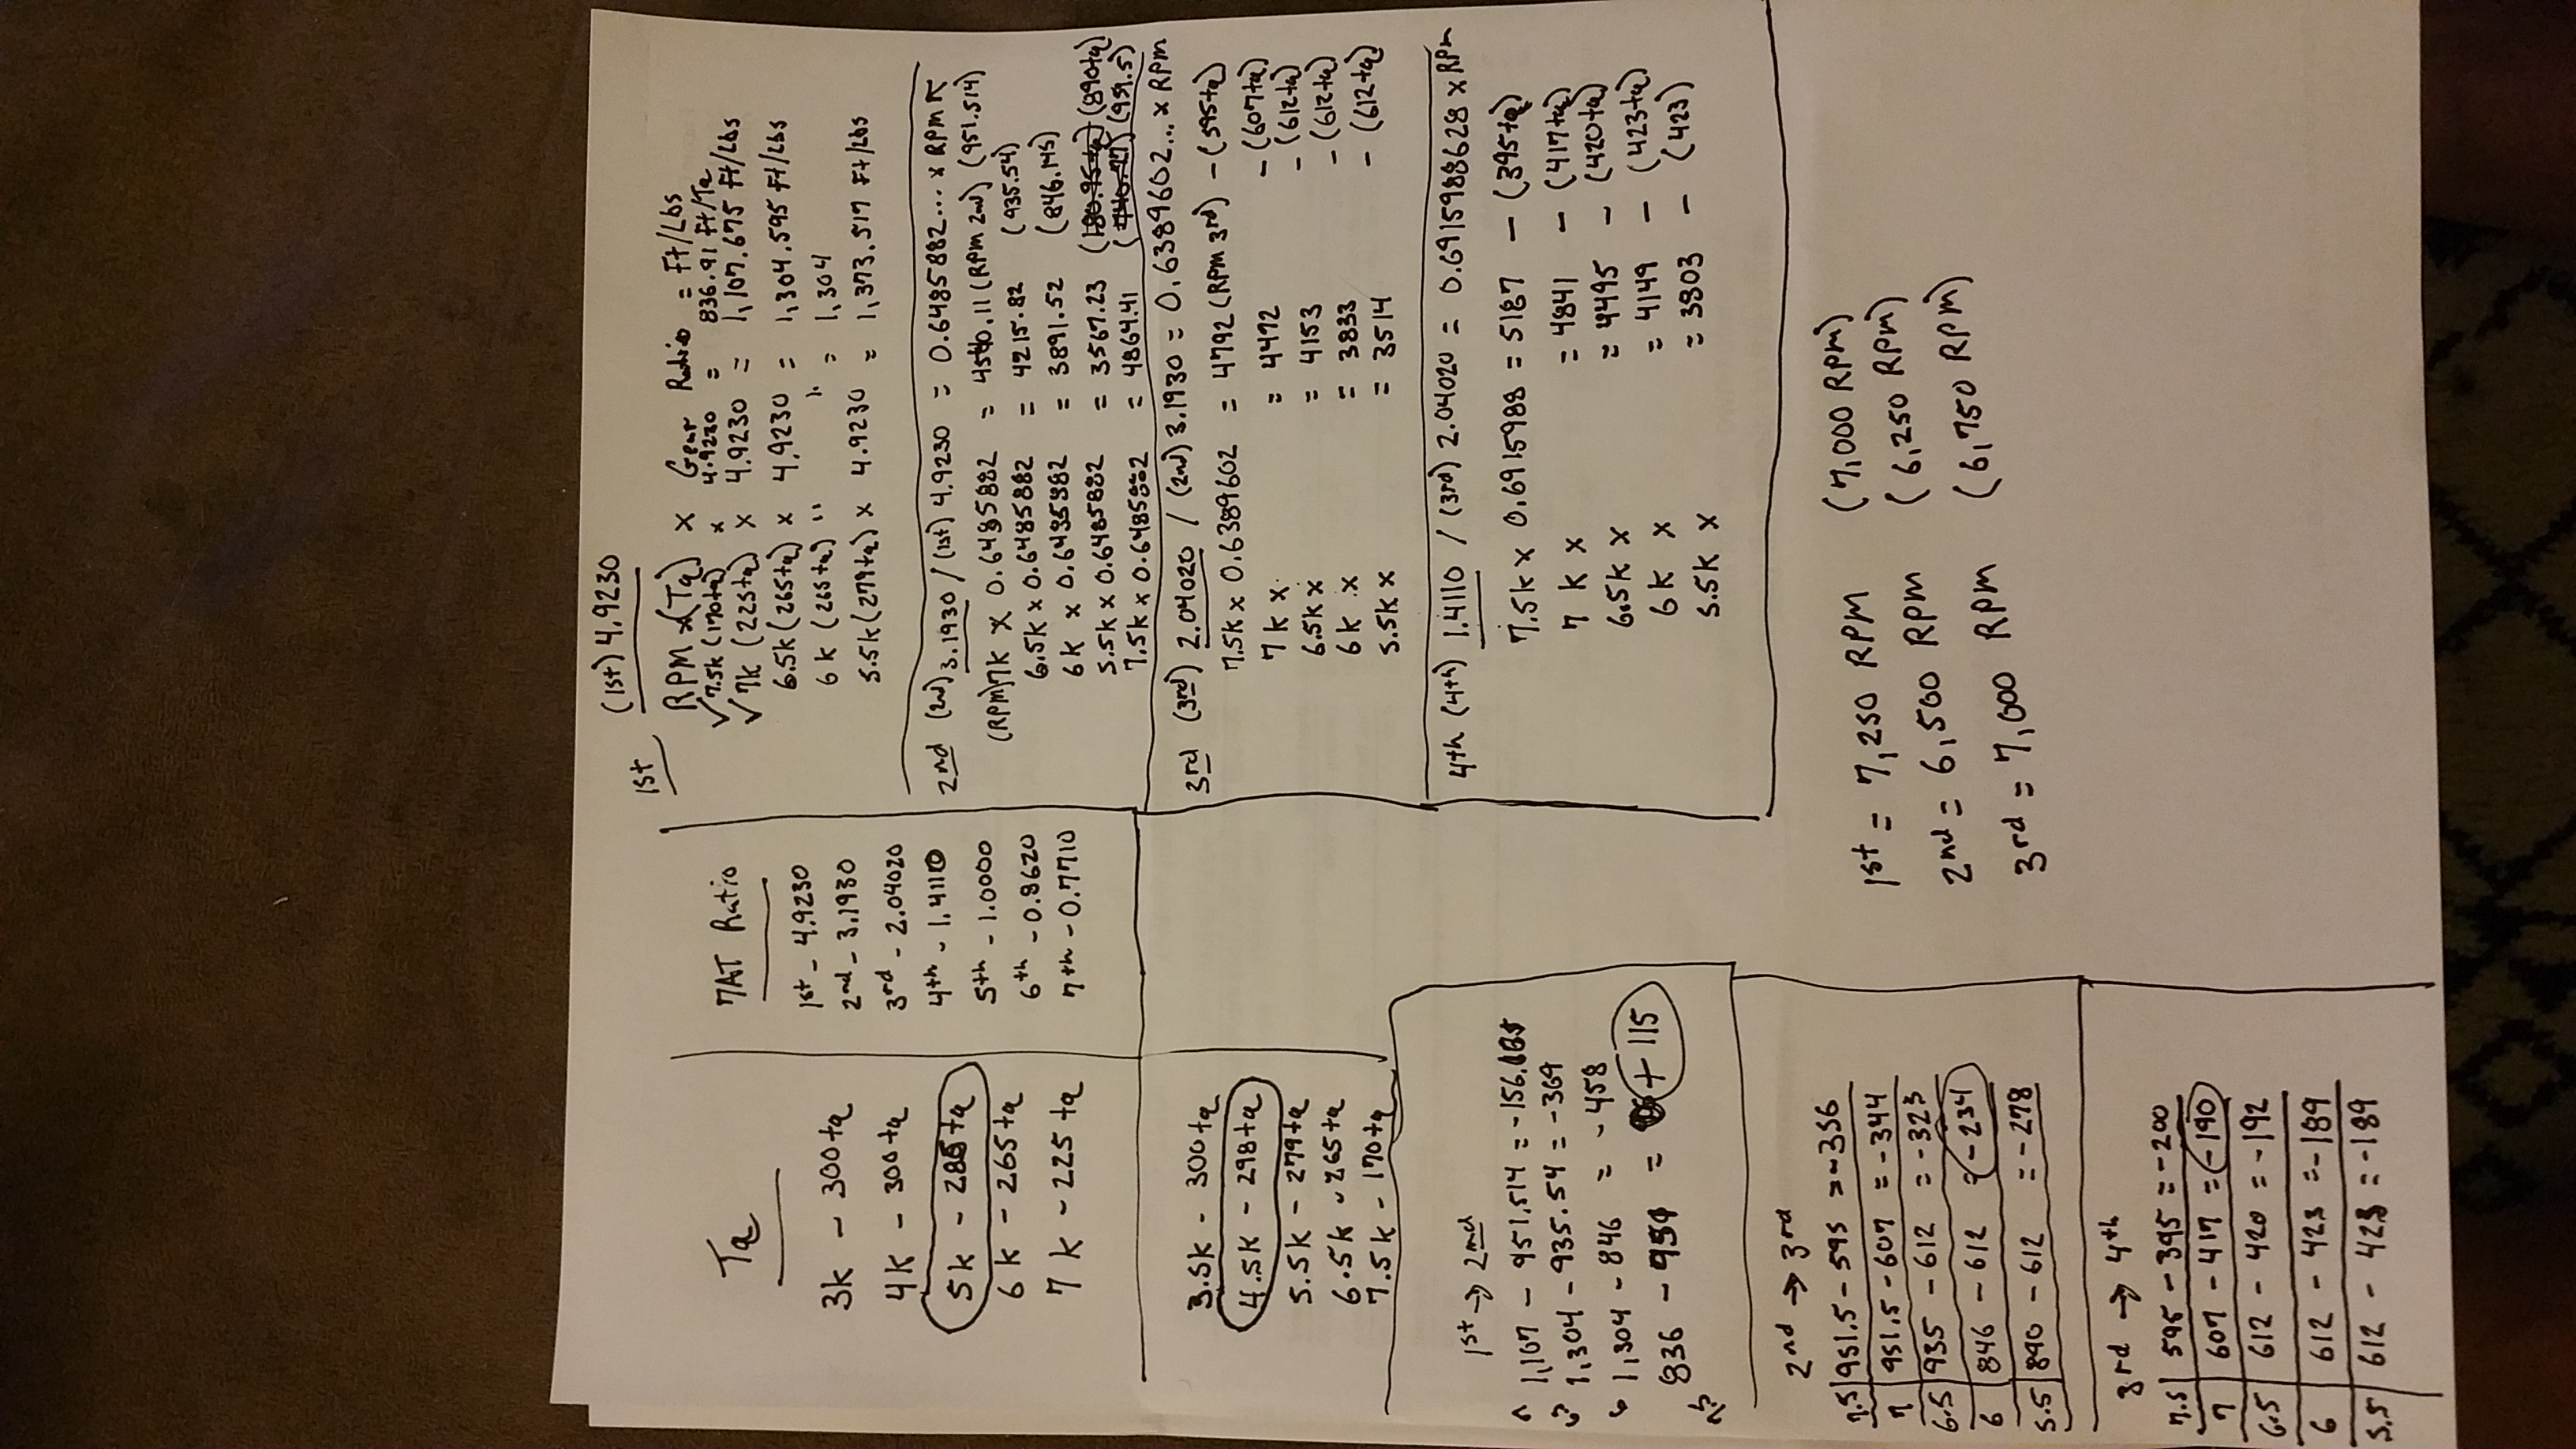 Tq
3k - 300tq
4k - 300tq
5k - 285tq
6k - 265tq
7k - 225tq
3.5k - 300tq
4.5k - 298tq
5.5k - 279tq
6.5k - 265tq
7.5k - 170tq
7AT Ratio
1st - 4.9230
2nd - 3.1930
3rd - 2.04020
4th - 1.4110
5th - 1.0000
6th - 0.8620
7th - 0.7710
1st (1st) 4.9230
RPM x(Tq) x Gear Ratio = Ft/Lbs
✓7.5k (170tq) x 4.9230 = 836.91 Ft/Tq
✓7k (225tq) x 4.9230 = 1,107.675 Ft/Lbs
6.5k (265tq) x 4.9230 = 1,304.595 Ft/Lbs
6k (265tq) " " = 1,304
5.5k (279tq) x 4.9230 = 1,373.517 Ft/Lbs
2nd (2nd) 3.1930 / (1st) 4.9230 = 0.6485882... x RPM
(RPM) 7k x 0.6485882 = 4540.11 (RPM 2nd) (951.514)
6.5k x 0.6485882 = 4215.82 (935.54)
6k x 0.6485882 = 3891.52 (846.145)
5.5k x 0.6485882 = 3567.23 (890tq)
7.5k x 0.6485882 = 4864.41 (951.5)
3rd (3rd) 2.04020 / (2nd) 3.1930 = 0.6389602... x RPM
7.5k x 0.6389602 = 4792 (RPM 3rd) - (595tq)
7k x = 4472 - (607tq)
6.5k x = 4153 - (612tq)
6k x = 3833 - (612tq)
5.5k x = 3514 - (612tq)
4th (4th) 1.4110 / (3rd) 2.04020 = 0.691598628 x RPM
7.5k x 0.6915988 = 5187 - (395tq)
7k x = 4841 - (417tq)
6.5k x = 4495 - (420tq)
6k x = 4149 - (423tq)
5.5k x = 3803 - (423)
1st → 2nd
1,107 - 951.514 = -156
1,304 - 935.54 = -369
1,304 - 846 = -458
836 - 951 = +115
2nd → 3rd
7.5 | 951.5 - 595 = -356
7 | 951.5 - 607 = -344
6.5 | 935 - 612 = -323
6 | 846 - 612 = -234
5.5 | 890 - 612 = -278
3rd → 4th
7.5 | 595 - 395 = -200
7 | 607 - 417 = -190
6.5 | 612 - 420 = -192
6 | 612 - 423 = -189
5.5 | 612 - 423 = -189
1st = 7,250 RPM (7,000 RPM)
2nd = 6,500 RPM (6,250 RPM)
3rd = 7,000 RPM (6,750 RPM)